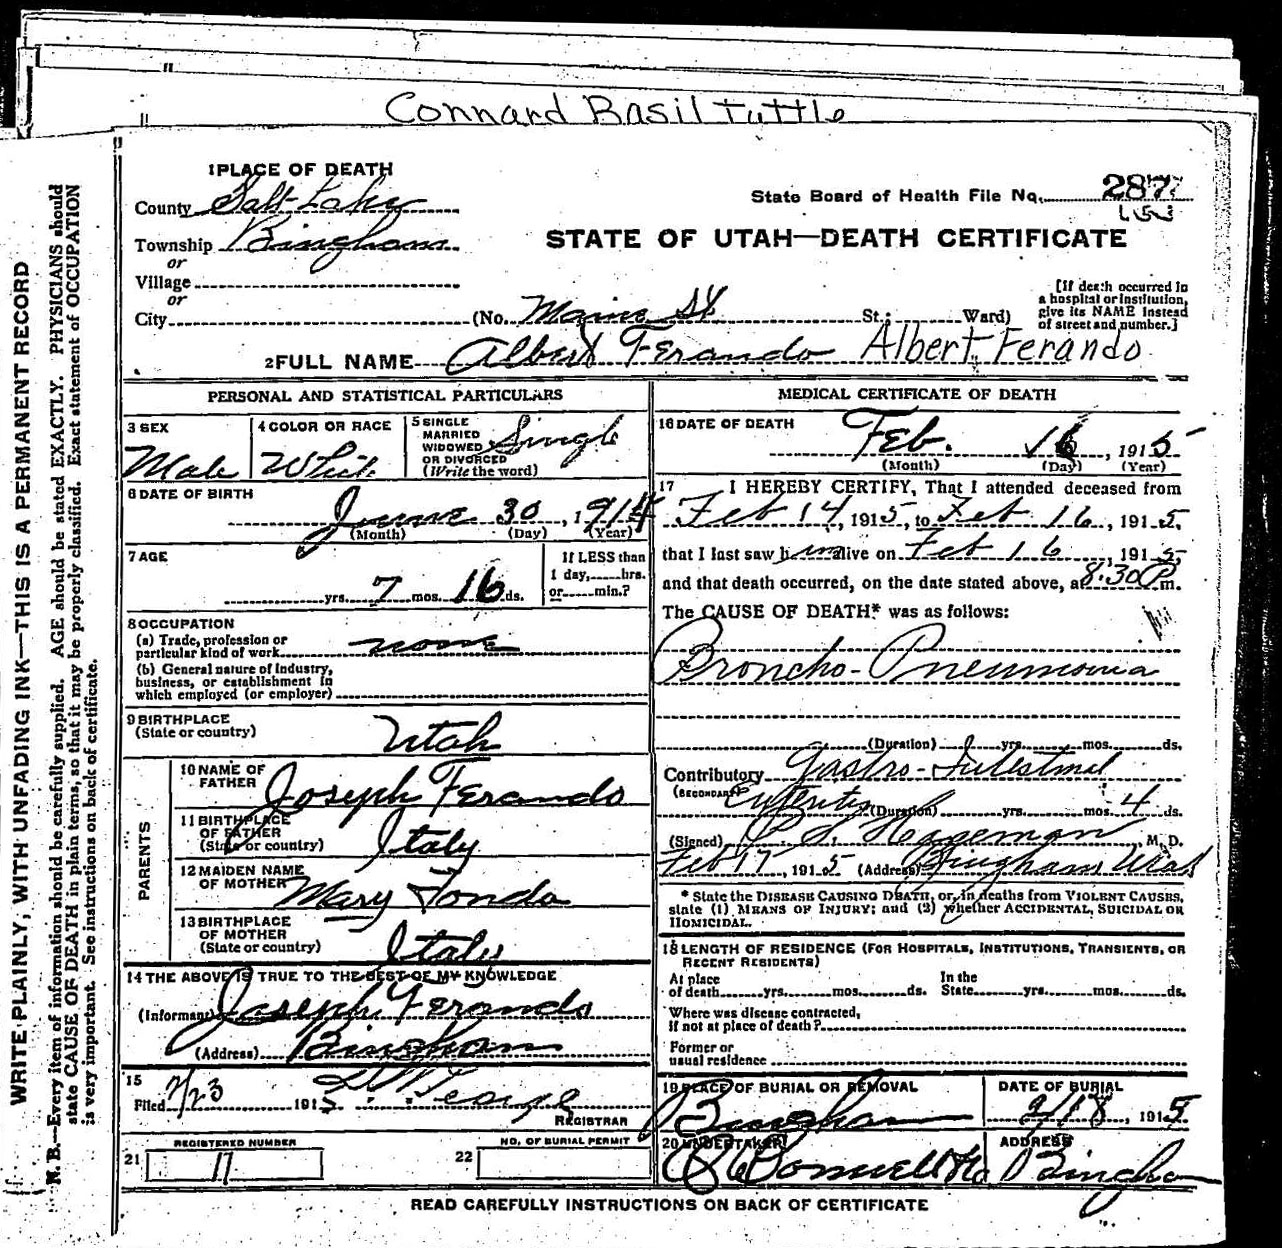 Connard Basil Tuttle
WRITE PLAINLY, WITH UNFADING INK—THIS IS A PERMANENT RECORD
N. B.—Every item of information should be carefully supplied. AGE should be stated EXACTLY. PHYSICIANS should
state CAUSE OF DEATH in plain terms, so that it may be properly classified. Exact statement of OCCUPATION
is very important. See instructions on back of certificate.
1 PLACE OF DEATH
County Salt Lake
State Board of Health File No. 287
Township Bingham
STATE OF UTAH—DEATH CERTIFICATE
or
Village
or
City (No. Maine St St.; Ward)
[If death occurred in
a hospital or institution,
give its NAME instead
of street and number.]
2 FULL NAME Albert Ferando Albert Ferando
PERSONAL AND STATISTICAL PARTICULARS
3 SEX
Male
4 COLOR OR RACE
White
5 SINGLE
MARRIED
WIDOWED
OR DIVORCED
(Write the word)
Single
6 DATE OF BIRTH
June 30, 1914
(Month) (Day) (Year)
7 AGE
yrs. 7 mos. 16 ds.
If LESS than
1 day, hrs.
or min.?
8 OCCUPATION
(a) Trade, profession or
particular kind of work none
(b) General nature of industry,
business, or establishment in
which employed (or employer)
9 BIRTHPLACE
(State or country) Utah
PARENTS
10 NAME OF
FATHER Joseph Ferando
11 BIRTHPLACE
OF FATHER
(State or country) Italy
12 MAIDEN NAME
OF MOTHER Mary Tonda
13 BIRTHPLACE
OF MOTHER
(State or country) Italy
14 THE ABOVE IS TRUE TO THE BEST OF MY KNOWLEDGE
(Informant) Joseph Ferando
(Address) Bingham
15
Filed 2/23 1915
REGISTRAR
REGISTERED NUMBER
21 17
NO. OF BURIAL PERMIT
22
MEDICAL CERTIFICATE OF DEATH
16 DATE OF DEATH
Feb. 16, 1915
(Month) (Day) (Year)
17 I HEREBY CERTIFY, That I attended deceased from
Feb 14, 1915, to Feb 16, 1915.
that I last saw him alive on Feb 16, 1915
and that death occurred, on the date stated above, at 8:30 P.m.
The CAUSE OF DEATH* was as follows:
Broncho-Pneumonia
(Duration) yrs. mos. ds.
Contributory Gastro-Intestinal
(SECONDARY) (Duration) yrs. mos. 4 ds.
(Signed) Hageman, M. D.
Feb 17, 1915 (Address) Bingham Utah
* State the DISEASE CAUSING DEATH, or, in deaths from VIOLENT CAUSES,
state (1) MEANS OF INJURY; and (2) whether ACCIDENTAL, SUICIDAL OR
HOMICIDAL.
18 LENGTH OF RESIDENCE (FOR HOSPITALS, INSTITUTIONS, TRANSIENTS, OR
RECENT RESIDENTS)
At place
of death yrs. mos. ds.
In the
State yrs. mos. ds.
Where was disease contracted,
if not at place of death?
Former or
usual residence
19 PLACE OF BURIAL OR REMOVAL
Bingham
DATE OF BURIAL
2/18, 1915
20 UNDERTAKER
ADDRESS
Bingham
READ CAREFULLY INSTRUCTIONS ON BACK OF CERTIFICATE